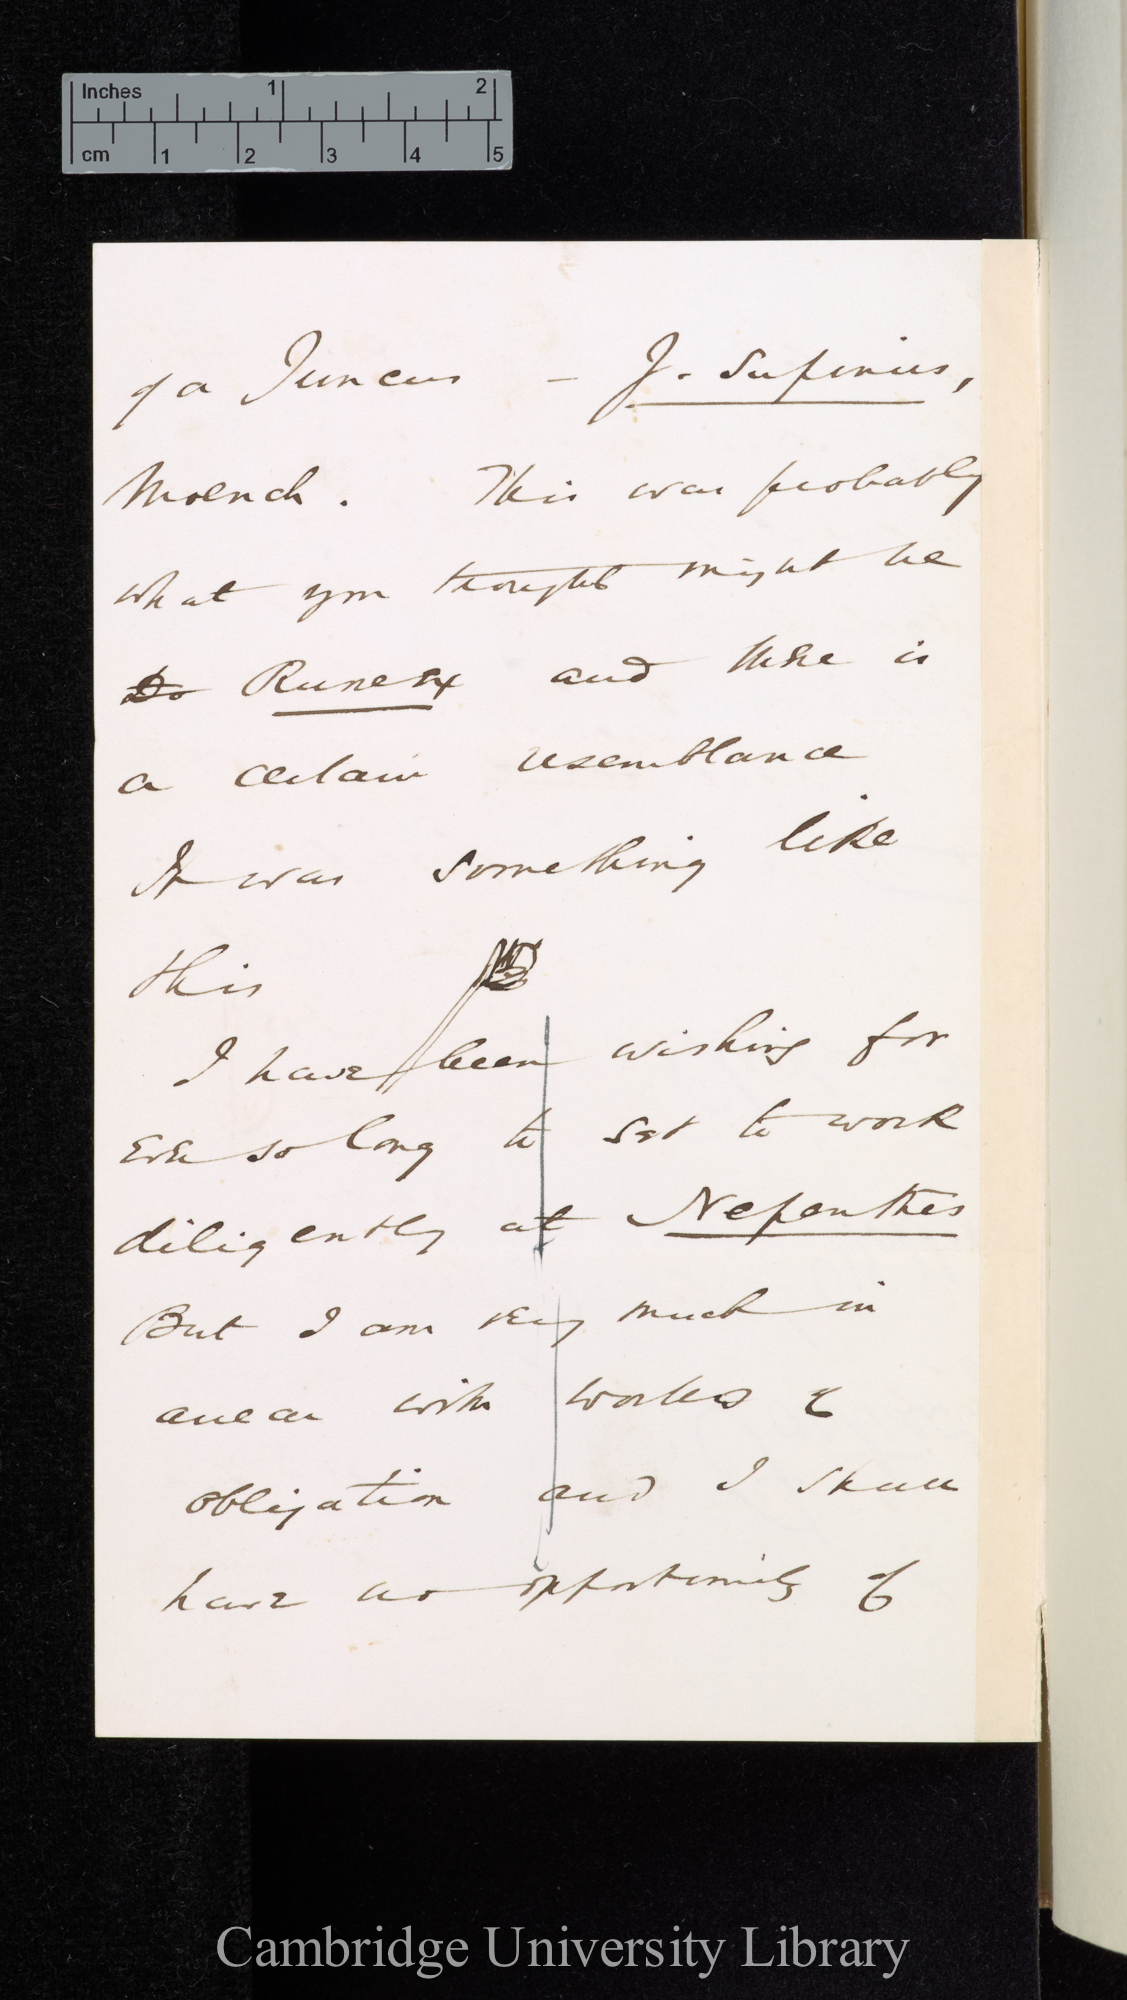 Inches 1 2
cm 1 2 3 4 5
of a Juncus – J. supinus,
Moench. This was probably
what you thought might be
Do Rumex and there is
a certain resemblance
It was something like
this
I have been wishing for
ever so long to set to work
diligently at Nepenthes
But I am very much in
arrear with works of
obligation and I shall
have no opportunity of
Cambridge University Library